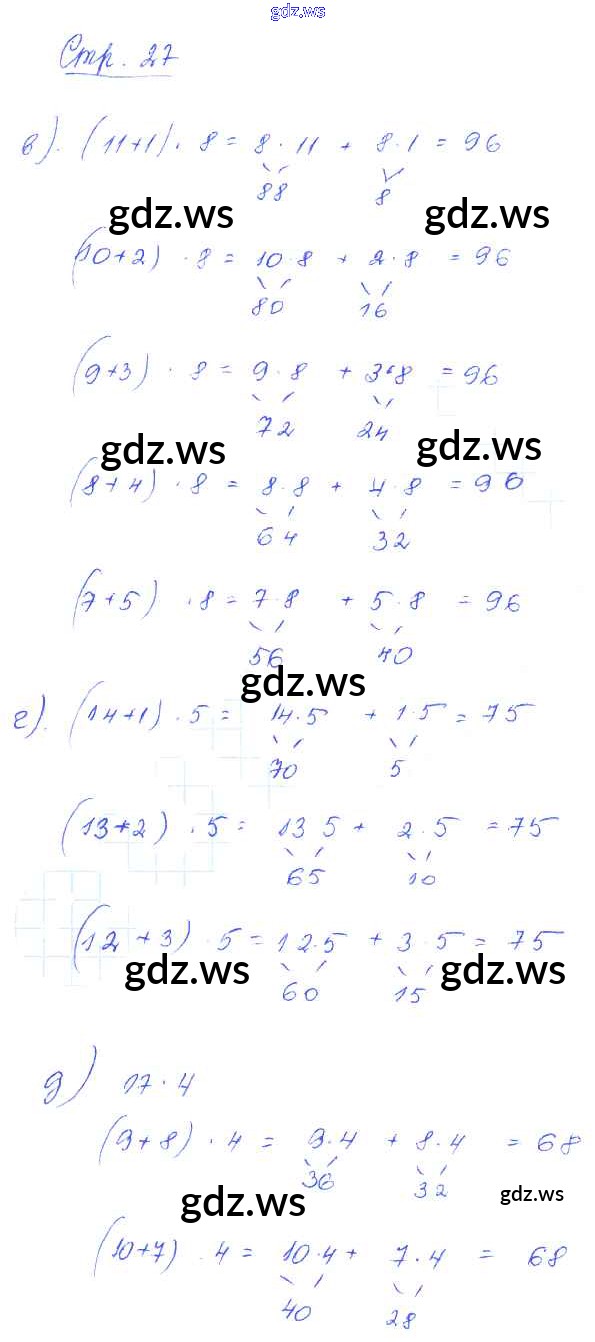 gdz.ws
Стр. 27
в). (11+1) · 8 = 8 · 11 + 8 · 1 = 96
88 8
gdz.ws gdz.ws
(10+2) · 8 = 10 · 8 + 2 · 8 = 96
80 16
(9+3) · 8 = 9 · 8 + 3 · 8 = 96
72 24
gdz.ws gdz.ws
(8+4) · 8 = 8 · 8 + 4 · 8 = 96
64 32
(7+5) · 8 = 7 · 8 + 5 · 8 = 96
56 40
gdz.ws
г). (14+1) · 5 = 14 · 5 + 1 · 5 = 75
70 5
(13+2) · 5 = 13 5 + 2 · 5 = 75
65 10
(12+3) · 5 = 12 · 5 + 3 · 5 = 75
gdz.ws gdz.ws
60 15
д) 17 · 4
(9+8) · 4 = 9 · 4 + 8 · 4 = 68
36 32
gdz.ws gdz.ws
(10+7) · 4 = 10 · 4 + 7 · 4 = 68
40 28